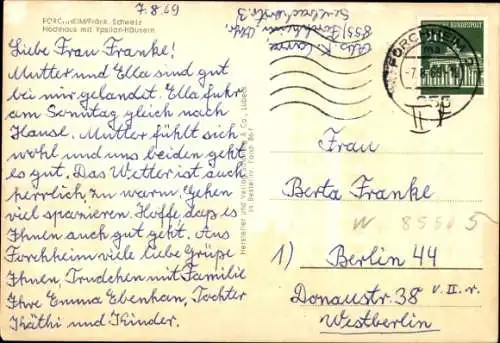 7.8.69
FORCHHEIM/Fränk. Schweiz
Hochhaus mit Ypsilon-Häusern
Liebe Frau Franke!
Mutter und Ella sind gut
bei mir gelandet. Ella fuhr
am Sonntag gleich nach
Hause. Mutter fühlt sich
wohl und uns beiden geht
es gut. Das Wetter ist auch
herrlich, zu warm. Gehen
viel spazieren. Hoffe, daß es
Ihnen auch gut geht. Aus
Forchheim viele liebe Grüße
Ihnen, Trudchen mit Familie
Ihre Emma Ebenhan, Tochter
Käthi und Kinder.
Hersteller und Verlag & Co., Lübeck
855) Forchheim
FORCHHEIM
-7.8.69
855
BUNDESPOST
Frau
Berta Franke
W. 8550 5
1) Berlin 44
Donaustr. 38 v. II. r.
Westberlin